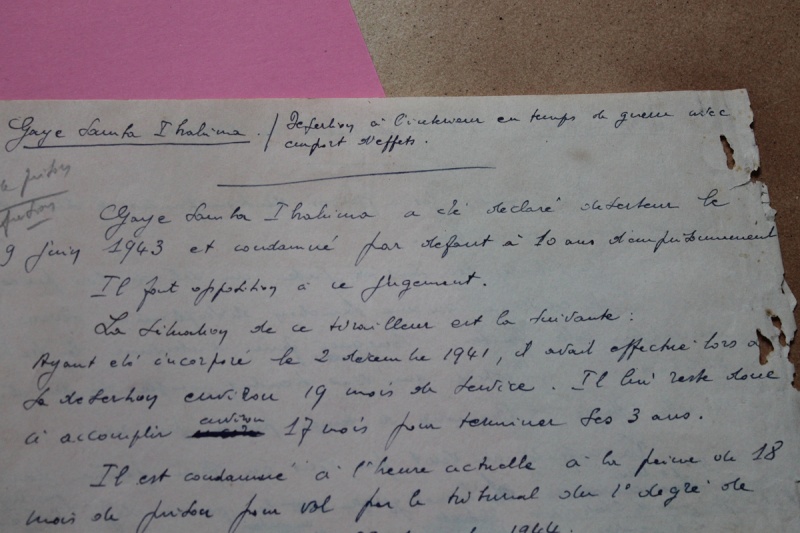 Gaye Samba Ibrahima. / Desertion à l'interieur en temps de guerre avec
emport d'effets.
de prison
Gaye Samba Ibrahima a été declaré deserteur le
9 juin 1943 et condamné par defaut à 10 ans d'emprisonnement
Il fait opposition à ce jugement.
La situation de ce tirailleur est la suivante :
Ayant été incorporé le 2 decembre 1941, il avait effectué lors de
sa desertion environ 19 mois de service. Il lui reste donc
à accomplir environ 17 mois pour terminer ses 3 ans.
Il est condamné à l'heure actuelle à la peine de 18
mois de prison pour vol par le tribunal du 1° degré de
1944.